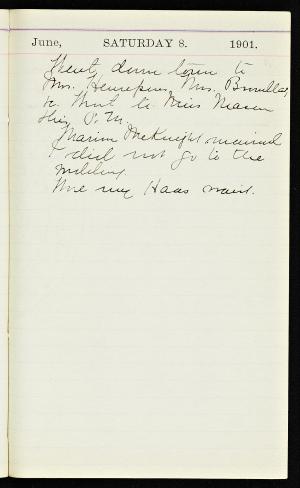 June, SATURDAY 8. 1901.
Went down town to
Mrs. Mrs.
&c. Went to Miss Mason
this P.M.
Marion McKnight married
I did not go to the
wedding
Wore my Haas waist.